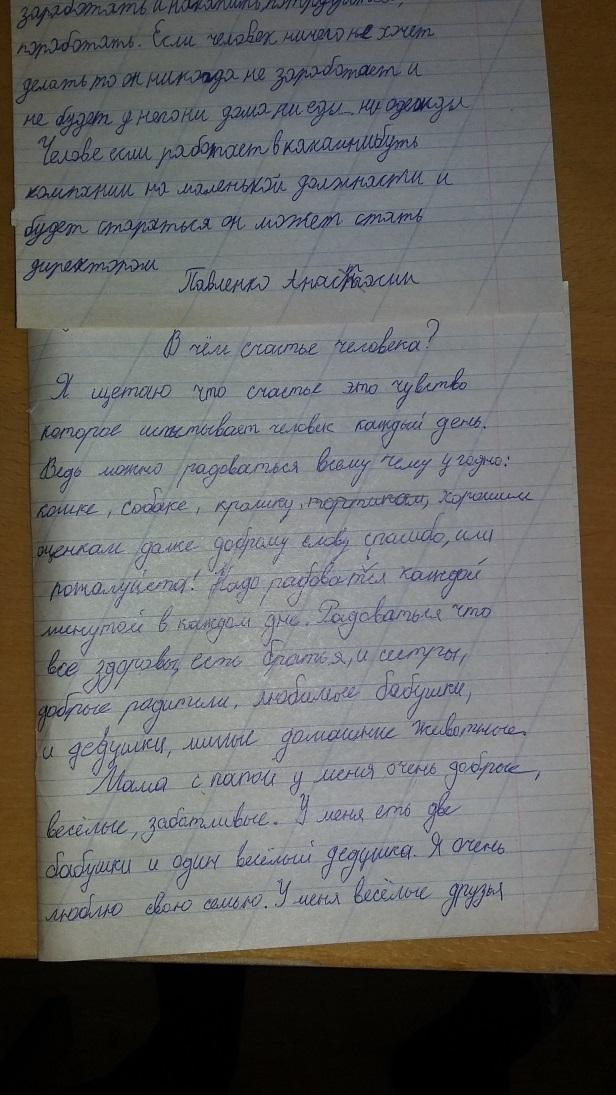 заработать и накапить потрудиться,
поработать. Если человек ничего не хочет
делать то он никогда не заработает и
не будет у него ни дома ни еды ни одежды
Челове если работает в какаинибуть
компании на маленькой должности и
будет стараться он может стать
директором
Павленко Анастасии
В чём счастье человека?
Я щетаю что счастье это чувство
которое испытывает человек каждый день.
Ведь можно радоваться всему чему угодно:
кошке, собаке, кролику, хорошим
оценкам даже доброму слову спасибо, или
пожалуйста! Надо радоватся каждой
минутой в каждом дне. Радоваться что
все здоровы, есть братья, и сестры,
добрые радители, любимые бабушки,
и дедушки, милые домашние животные.
Мама с папой у меня очень добрые,
весёлые, забатливые. У меня есть две
бабушки и один весёлый дедушка. Я очень
люблю свою семью. У меня весёлые друзья